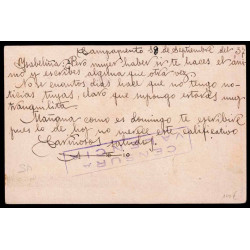 Campamento 18 de Septiembre del 37
Isabelina: Pero mujer haber si te haces el ani-
mo y escribes alguna que otra vez.
No se cuantos dias hace que no tengo no-
ticias tuyas, claro que supongo estaras muy
tranquilita.
Mañana como es domingo te escribiré
pues lo de hoy no merece este calificativo
Cariñosos saludos
CENSURA